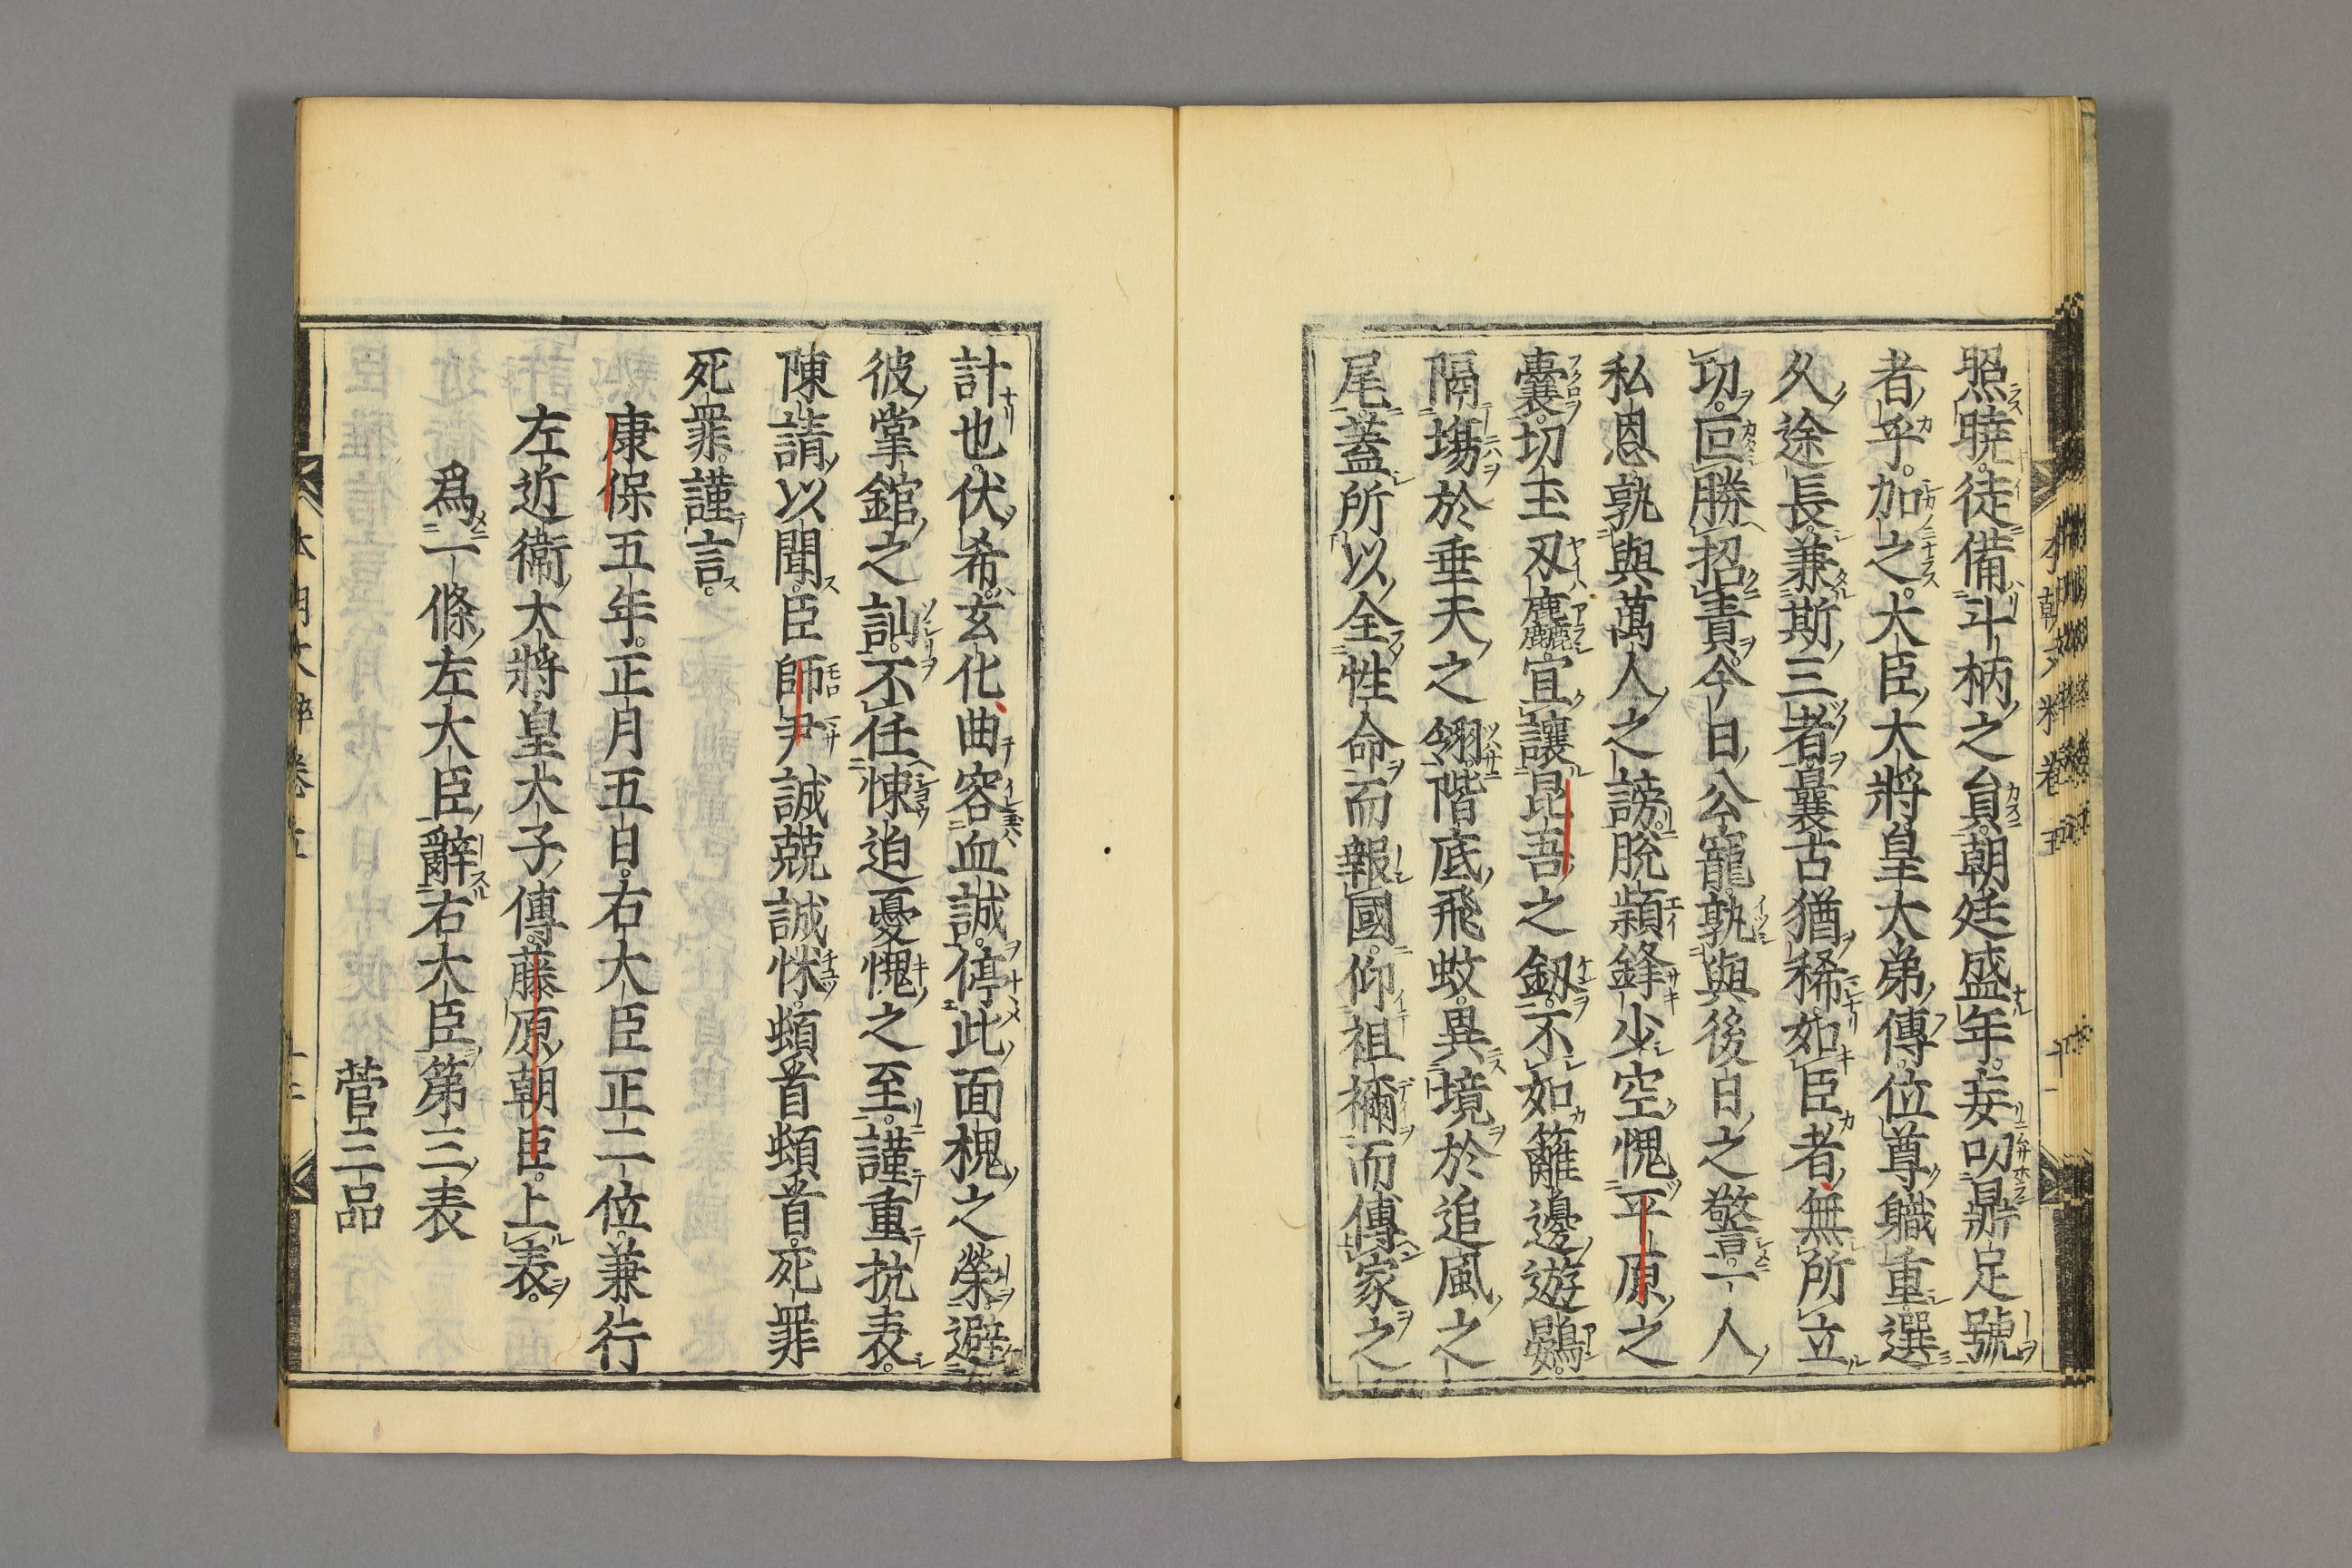 照曉徒備斗柄之員朝廷盛年妄叨鼎足號
者乎。加之。大臣大將皇太弟傅位尊職重選
久途長兼斯三者曩古猶稀如臣者無所立
功。回勝招責今日公寵孰與後日之警一人
私恩孰與萬人之謗脱穎鋒少空愧平原之
囊。切玉刃麤宜讓昆吾之釼不如籬邊遊鷃。
隔塲於垂天之翎階底飛蚊。異境於追風之
尾蓋所以全性命而報國。仰祖禰而傳家之
計也伏希玄化曲容血誠停此面槐之榮避
彼掌錧之訕。不任悚迫憂愧之至。謹重抗表。
陳請以聞。臣師尹誠兢誠怵。頓首頓首死罪
死罪。謹言。
康保五年。正月五日。右大臣正二位兼行
左近衞大將皇太子傅。藤原朝臣。上表。
爲一條左大臣辭右大臣第三表
菅三品
本朝文粹卷五